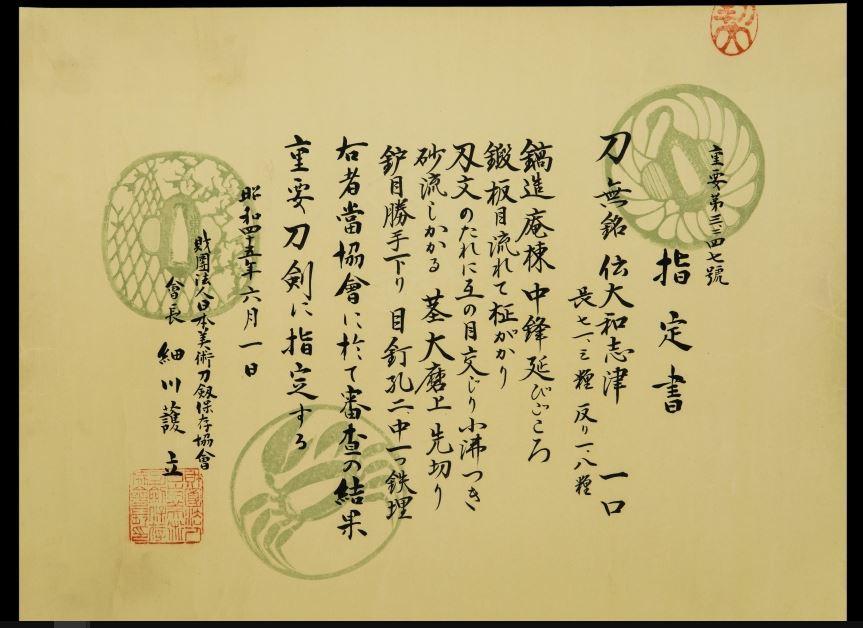 重要第三二四七號
指定書
刀 無銘 伝大和志津 一口
長七一、三糎 反り一、八糎
鎬造 庵棟 中鋒延びごころ
鍛 板目流れて柾がかり
刃文 のたれに互の目交じり 小沸つき
砂流しかかる 茎 大磨上 先切り
鈩目勝手下り 目釘孔二、中一つ鉄埋
右者當協會に於て審査の結果
重要刀剣に指定する
昭和四十五年六月一日
財團法人日本美術刀剣保存協會
會長 細川護立